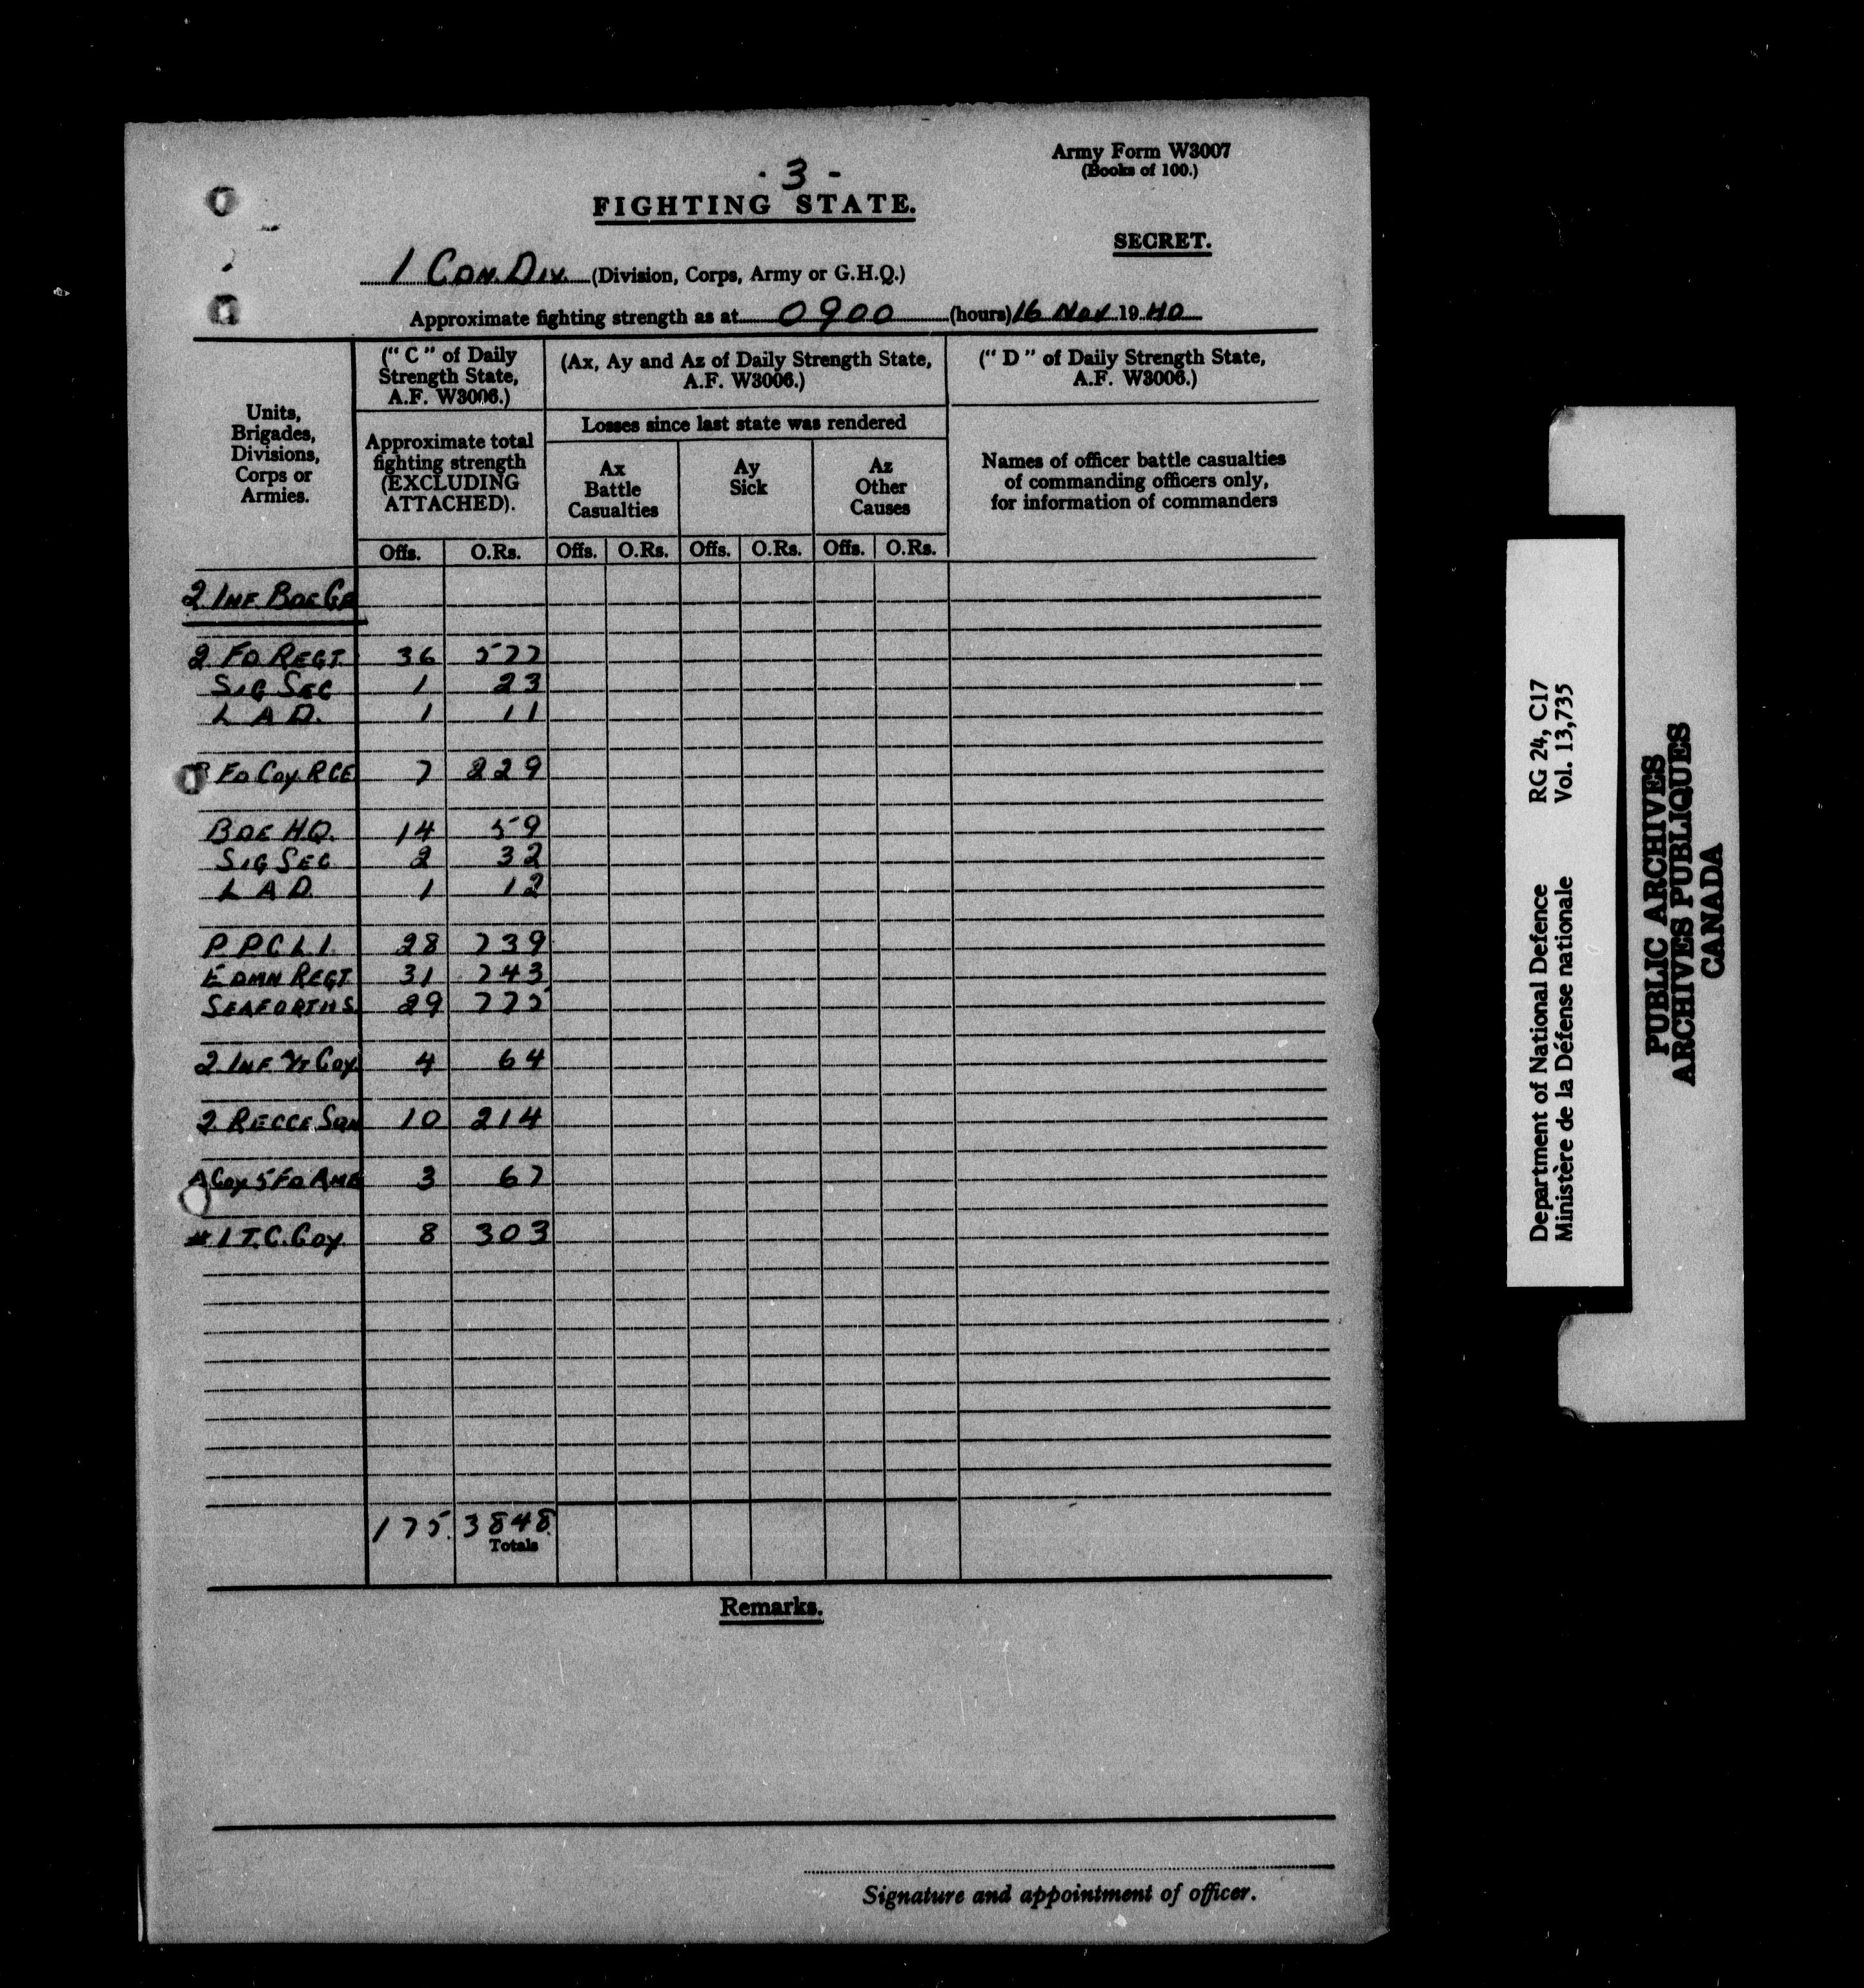 Army Form W3007
(Books of 100.)
- 3 -
FIGHTING STATE.
SECRET.
1 CDN. DIV. (Division, Corps, Army or G.H.Q.)
Approximate fighting strength as at 0900 (hours) 16 Nov 1940
Units, Brigades, Divisions, Corps or Armies.
("C" of Daily Strength State, A.F. W3006.)
(Ax, Ay and Az of Daily Strength State, A.F. W3006.)
("D" of Daily Strength State, A.F. W3006.)
Approximate total fighting strength (EXCLUDING ATTACHED).
Losses since last state was rendered
Ax Battle Casualties
Ay Sick
Az Other Causes
Names of officer battle casualties of commanding officers only, for information of commanders
Offs. O.Rs. Offs. O.Rs. Offs. O.Rs. Offs. O.Rs.
2 INF BDE GP
2 FD REGT. 36 577
SIG SEC 1 23
L A D. 1 11
FD COY RCE 7 229
BDE HQ. 14 59
SIG SEC 2 32
L A D. 1 12
P P C L I. 28 739
EDMN REGT. 31 743
SEAFORTHS. 29 775
2 INF A/T COY. 4 64
2 RECCE SQN 10 214
A COY 5 FD AMB 3 67
#1 T.C. COY 8 303
175. 3848.
Totals
Remarks.
Signature and appointment of officer.
Department of National Defence RG 24, C17
Ministère de la Défense nationale Vol. 13,735
PUBLIC ARCHIVES
ARCHIVES PUBLIQUES
CANADA